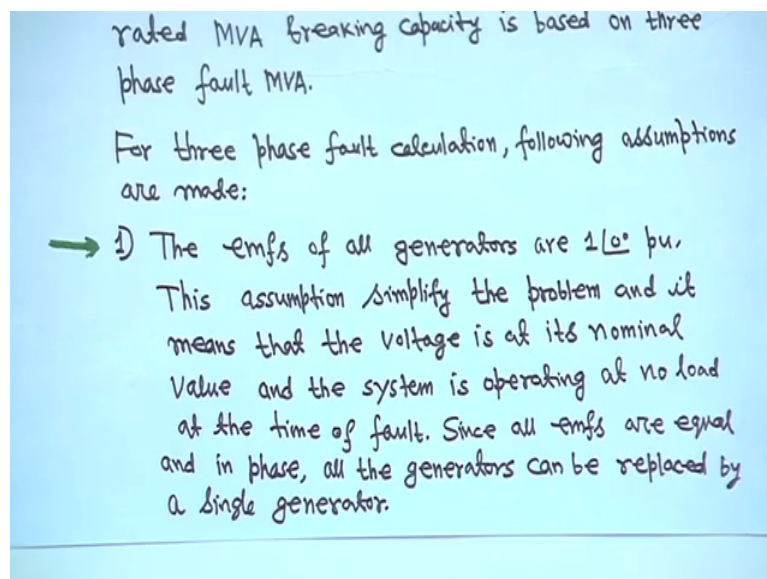 rated MVA breaking capacity is based on three
phase fault MVA.
For three phase fault calculation, following assumptions
are made:
1) The emfs of all generators are 1∠0° pu.
This assumption simplify the problem and it
means that the voltage is at its nominal
value and the system is operating at no load
at the time of fault. Since all emfs are equal
and in phase, all the generators can be replaced by
a single generator.